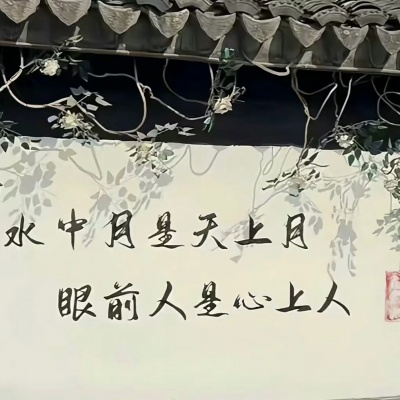 水中月是天上月
眼前人是心上人